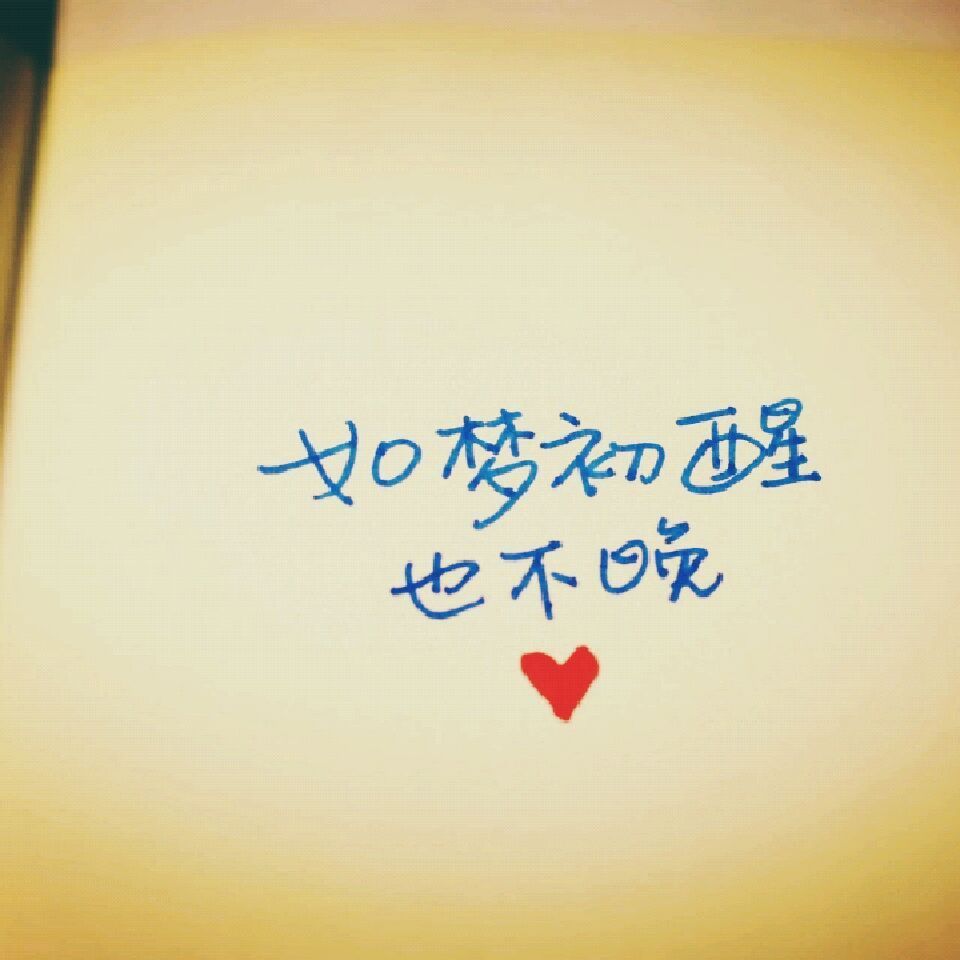 如梦初醒
也不晚